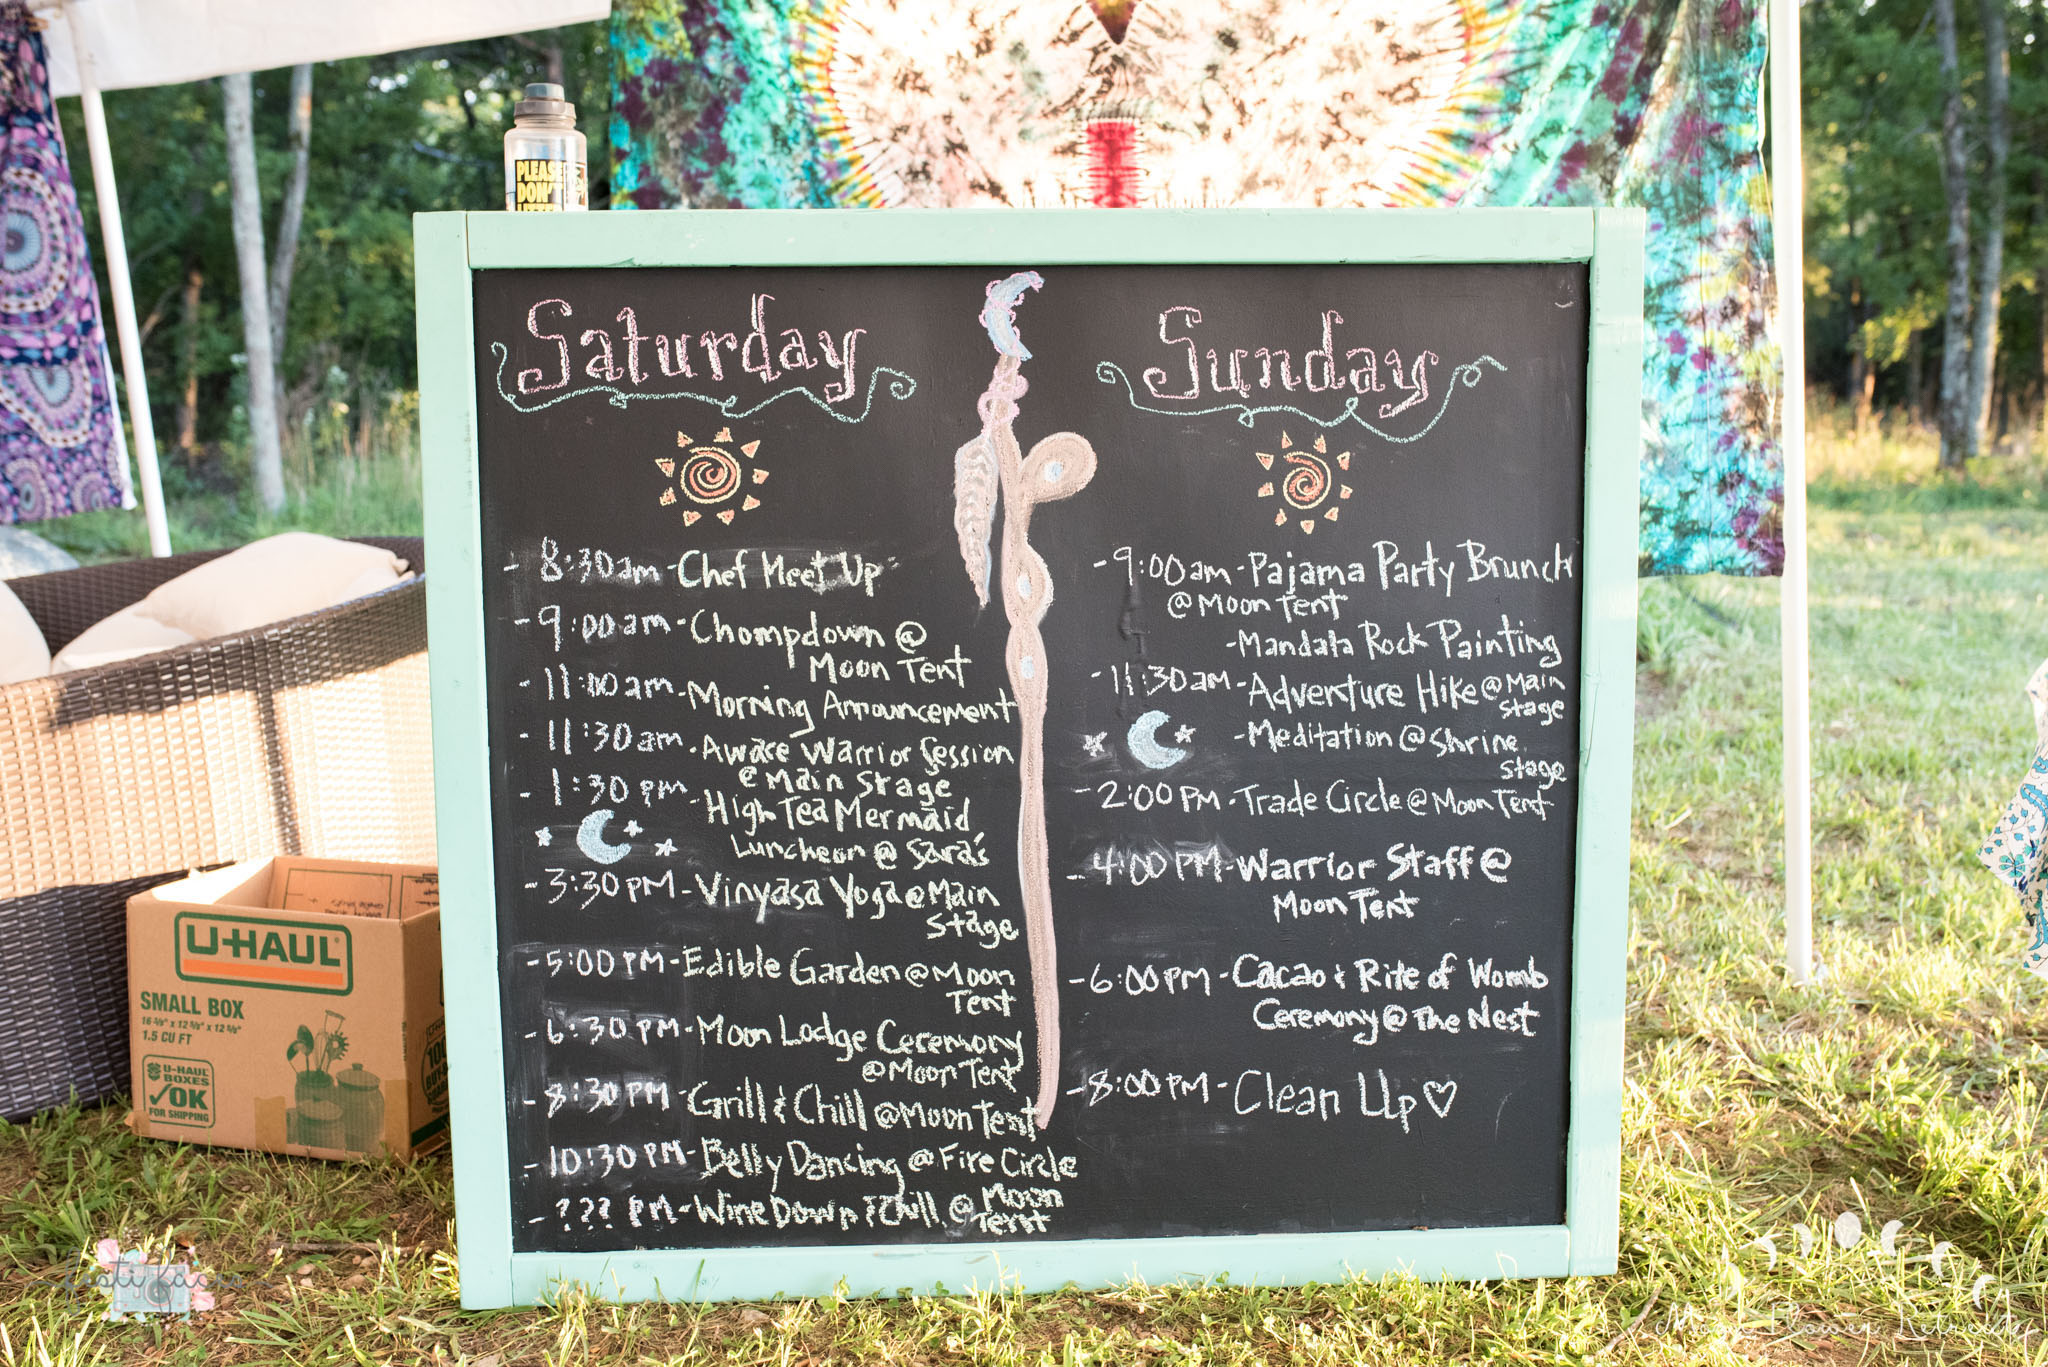 PLEASE
DON'T
Saturday
- 8:30am - Chef Meet Up
- 9:00am - Chompdown @
Moon Tent
- 11:00am - Morning Announcement
- 11:30am - Awake Warrior Session
@ Main Stage
- 1:30 pm - High Tea Mermaid
Luncheon @ Sara's
- 3:30 PM - Vinyasa Yoga @ Main
Stage
- 5:00 PM - Edible Garden @ Moon
Tent
- 6:30 PM - Moon Lodge Ceremony
@ Moon Tent
- 8:30 PM - Grill & Chill @ Moon Tent
- 10:30 PM - Belly Dancing @ Fire Circle
- ??? PM - Wine Down & Chill @ Moon
Tent
Sunday
- 9:00am - Pajama Party Brunch
@ Moon Tent
- Mandala Rock Painting
- 11:30am - Adventure Hike @ Main
Stage
- Meditation @ Shrine
Stage
- 2:00 PM - Trade Circle @ Moon Tent
- 4:00 PM - Warrior Staff @
Moon Tent
- 6:00 PM - Cacao & Rite of Womb
Ceremony @ The Nest
- 8:00 PM - Clean Up ♡
U-HAUL
SMALL BOX
16 3/8" x 12 5/8" x 12 5/8"
1.5 CU FT
U-HAUL
BOXES
✓OK
FOR SHIPPING
festi faces
Moon Flower Retreats